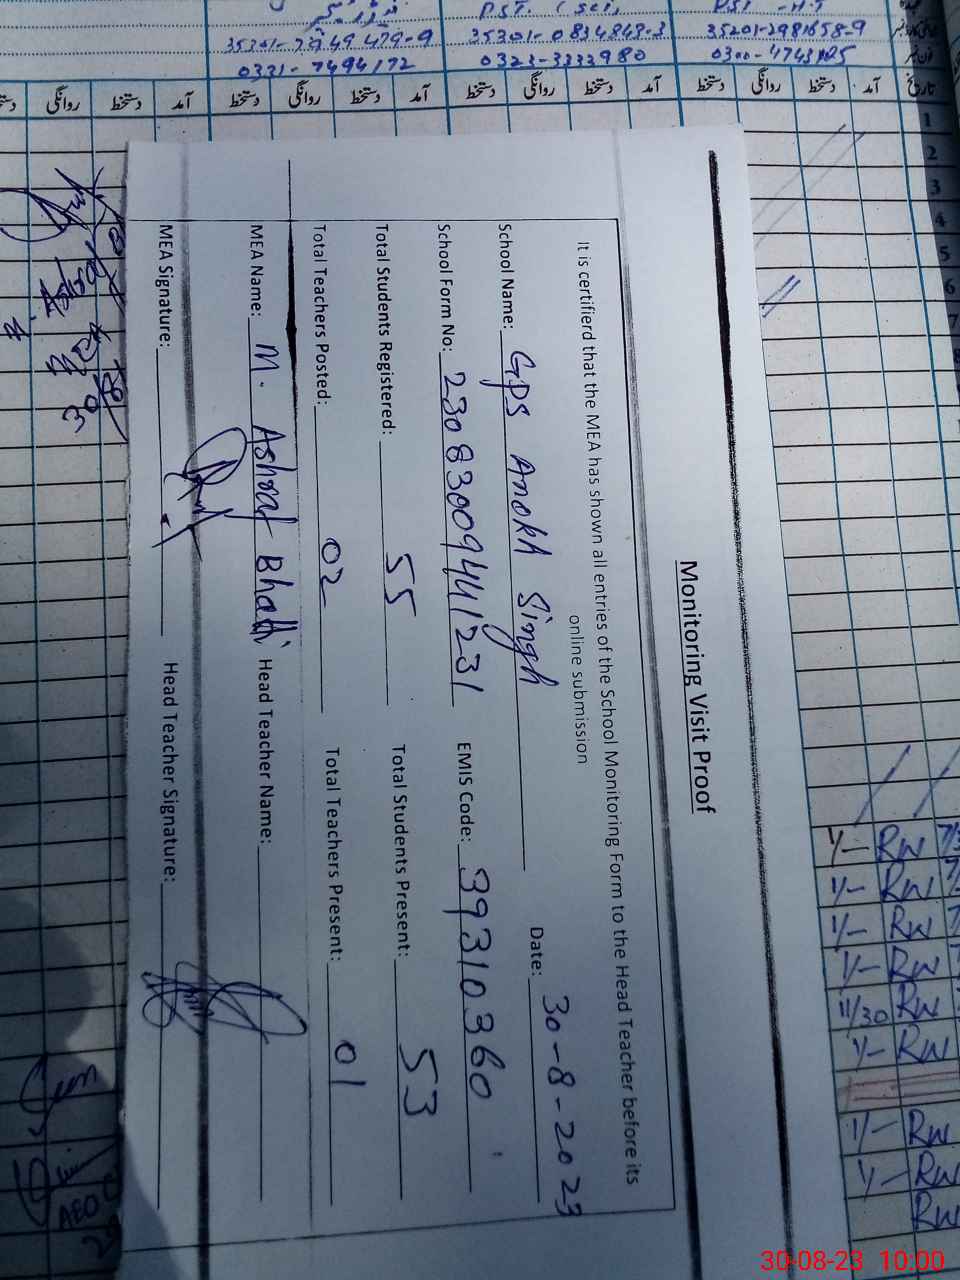 P.S.T. (Sci)
35301-7949479-9
35301-0834848-3
35201-2981658-9
0331-7494172
0323-3333980
دستخط روانگی دستخط آمد دستخط روانگی دستخط آمد دستخط روانگی دستخط آمد تاریخ
1
2
3
4
5
6
7
Monitoring Visit Proof
It is certifierd that the MEA has shown all entries of the School Monitoring Form to the Head Teacher before its
online submission
School Name: GPS Anokh Singh Date: 30-8-2023
School Form No: 23083009441231 EMIS Code: 39310360
Total Students Registered: 55 Total Students Present: 53
Total Teachers Posted: 02 Total Teachers Present: 01
MEA Name: M. Ashraf Bhatti Head Teacher Name:
MEA Signature: Head Teacher Signature:
1/- RW
1/- RW
1/- RW
1/- RW
11/30 RW
1/- RW
1/- RW
1/- RW
RW
AEO
30-08-23 10:00